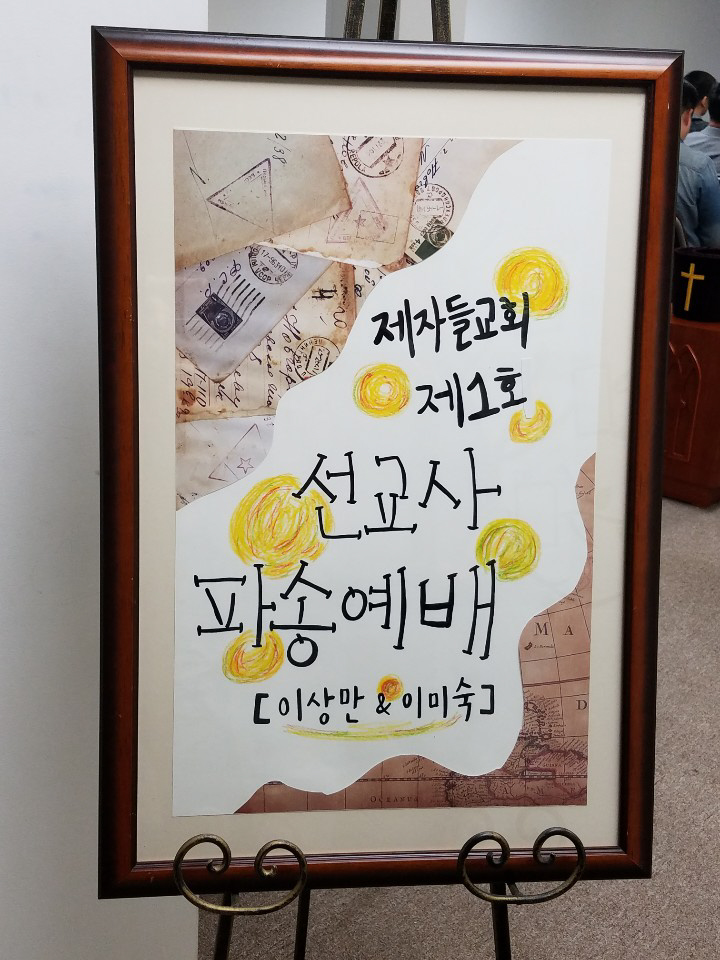 제자들교회
제1호
선교사
파송예배
[이상만 & 이미숙]
M A
D
OCEANUS